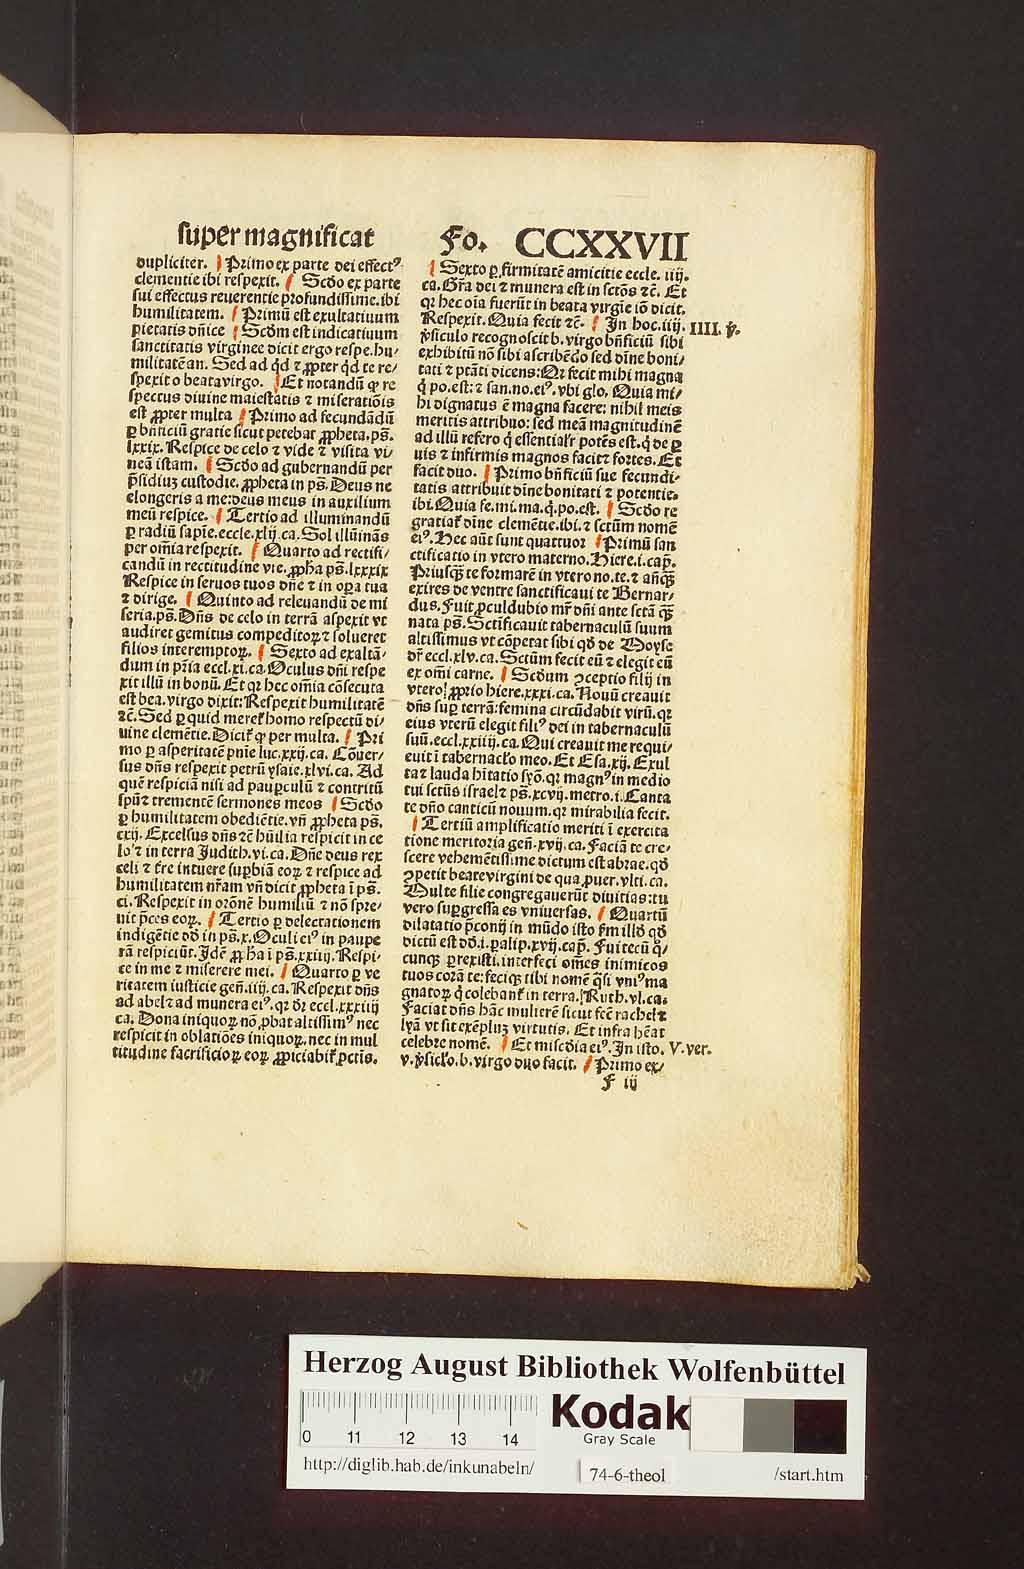 super magnificat
Fo. CCXXVII
dupliciter. Primo ex parte dei effectꝰ
clementie ibi respexit. Scd̄o ex parte
sui effectus reuerentie profundissime. ibi
humilitatem. Primū est exultatiuum
pietatis dn̄ice Scd̄m est indicatiuum
sanctitatis virginee dicit ergo respe. hu/
militatē an. Sed ad qd̄ ⁊ ꝓpter qd̄ te re/
spexit o beata virgo. Et notandū ꝙ re
spectus diuine maiestatis ⁊ miseratiōis
est ꝓpter multa Primo ad fecundādū
ꝑ bn̄ficiū gratie sicut petebat ꝓpheta. ps̄.
lxxix. Respice de celo ⁊ vide ⁊ visita vi/
neā istam. Scd̄o ad gubernandū per
p̄sidiuꝫ custodie. ꝓpheta in ps̄. Deus ne
elongeris a me: deus meus in auxilium
meū respice. Tertio ad illuminandū
ꝑ radiū sapīe. eccle. xlij. ca. Sol illūināS
per om̄ia respexit. Quarto ad rectifi/
candū in rectitudine vie. ꝓph̄a ps̄. lxxxix
Respice in seruos tuos dn̄e ⁊ in oꝑa tua
⁊ dirige. Quinto ad releuandū de mi
seria. ps̄. Dn̄s de celo in terrā aspexit vt
audiret gemitus compeditoꝝ ⁊ solueret
filios interemptoꝝ. Sexto ad exaltā/
dum in pr̄ia eccl. xi. ca. Oculus dn̄i respe
xit illū in bonū. Et qꝛ hec om̄ia cōsecuta
est bea. virgo dixit: Respexit humilitatē
⁊c̄. Sed ꝑ quid meret̄ homo respectū di/
uine clemētie. Dicit̄ ꝙ per multa. Pri
mo ꝑ asperitatē pn̄ie luc. xxij. ca. Cōuer/
sus dn̄s respexit petrū ysaie. xlvi. ca. Ad
quē respiciā nisi ad pauꝑculū ⁊ contritū
spūꝫ trementē sermones meos Scd̄o
ꝑ humilitatem obediētie. vn̄ ꝓpheta ps̄.
cxij. Excelsus dn̄s ⁊ hūilia respicit in ce
lo ⁊ in terra Judith. vi. ca. Dn̄e deus rex
celi ⁊ t̄re intuere suꝑbiā eoꝝ ⁊ respice ad
humilitatem nr̄am vn̄ dicit ꝓpheta ī ps̄.
ci. Respexit in orōnē humiliū ⁊ nō spre/
uit p̄ces eoꝝ. Tertio ꝑ delectationem
indigētie dd̄ in ps̄. x. Oculi eiꝰ in paupe
rā respiciūt. Idē ꝓph̄a ī ps̄. xxiiij. Respi/
ce in me ⁊ miserere mei. Quarto ꝑ ve
ritatem iusticie gen̄. iiij. ca. Respexit dn̄s
ad abel ⁊ ad munera eiꝰ. qꝛ dr̄ eccl. xxxiiij
ca. Dona iniquoꝝ nō ꝓbat altissimꝰ nec
respicit in oblatiōes iniquoꝝ. nec in mul
titudine sacrificioꝝ eoꝝ ꝓpiciabit̄ pctīs.
Sexto ꝑ firmitatē amicitie eccle. iiij.
ca. Gr̄a dei ⁊ munera est in sctōs ⁊c̄. Et
qꝛ hec oīa fuerūt in beata virgīe iō dicit.
Respexit. Quia fecit ⁊c̄. In hoc. iiij.
ꝟsiculo recognoscit b. virgo bn̄ficiū sibi
exhibitū nō sibi ascribēdo sed dīne boni/
tati ⁊ ptāti dicens: Qꝛ fecit mihi magna
q̇ po. est: ⁊ san. no. eiꝰ. vbi glo. Quia mi/
hi dignatus ē magna facere: nihil meis
meritis attribuo: sed meā magnitudinē
ad illū refero q̇ essentialr̄ potēs est. q̇ de ꝑ
uis ⁊ infirmis magnos facit ⁊ fortes. Et
facit duo. Primo bn̄ficiū sue fecundi/
tatis attribuit dīne bonitati ⁊ potentie.
ibi. Quia fe. mi. ma. q̇. po. est. Scd̄o re
gratiat̄ dīne clemētie. ibi. ⁊ sctūm nomē
eiꝰ. Hec aūt sunt quattuor Primū san
ctificatio in vtero materno. Hiere. i. cap̄.
Priusꝗ̄ te formarē in vtero no. te. ⁊ an̄ꝗ̄
exires de ventre sanctificaui te Bernar/
dus. Fuit ꝓculdubio mr̄ dn̄i ante sctā ꝗ̄
nata ps̄. Sctīficauit tabernaculū suum
altissimus vt cōpetat sibi qd̄ de Moyse
dr̄ eccl. xlv. ca. Sctūm fecit eū ⁊ elegit eū
ex om̄i carne. Scd̄um ↄceptio filij in
vtero ꝓprio hiere. xxxi. ca. Nouū creauit
dn̄s suꝑ terrā: femina circūdabit virū. qꝛ
eius vterū elegit filiꝰ dei in tabernaculū
suū. eccl. xxiiij. ca. Qui creauit me requi/
euit ī tabernacl̄o meo. Et Esa. xij. Exul
ta ⁊ lauda hītatio syō. qꝛ magnꝰ in medio
tui sctūs israel ⁊ ps̄. xcvij. metro. i. Canta
te dn̄o canticū nouum. qꝛ mirabilia fecit.
Tertiū amplificatio meriti ī exercita
tione meritoria gen̄. xvij. ca. Faciā te cre/
scere vehemētissime dictum est abrae. qd̄
ↄpetit beate virgini de qua ꝓuer. vlti. ca.
Multe filie congregauerūt diuitias: tu
vero suꝑgressa es vniuersas. Quartū
dilatatio p̄conij in mūdo isto ẜm illd̄ qd̄
dictū est dd̄. i. ꝑalip. xvij. cap̄. Fui tecū q̊/
cunqꝫ ꝑrexisti. interfeci om̄es inimicos
tuos corā te: feciqꝫ tibi nomē q̄si vniꝰ ma
gnatoꝝ q̇ colebant̄ in terra. Ruth. vl. ca.
Faciat dn̄s hāc mulierē sicut fec̄ rachel ⁊
lyā vt sit exēpluꝫ virtutis. Et infra heāt
celebre nomē. Et misc̄dia eiꝰ. In isto.
v. ꝟsicl̄o. b. virgo duo facit. Primo ex/
IIII. ꝟ.
V. ver.
F iij
Herzog August Bibliothek Wolfenbüttel
0 11 12 13 14
Kodak
Gray Scale
http://diglib.hab.de/inkunabeln/
74-6-theol
/start.htm